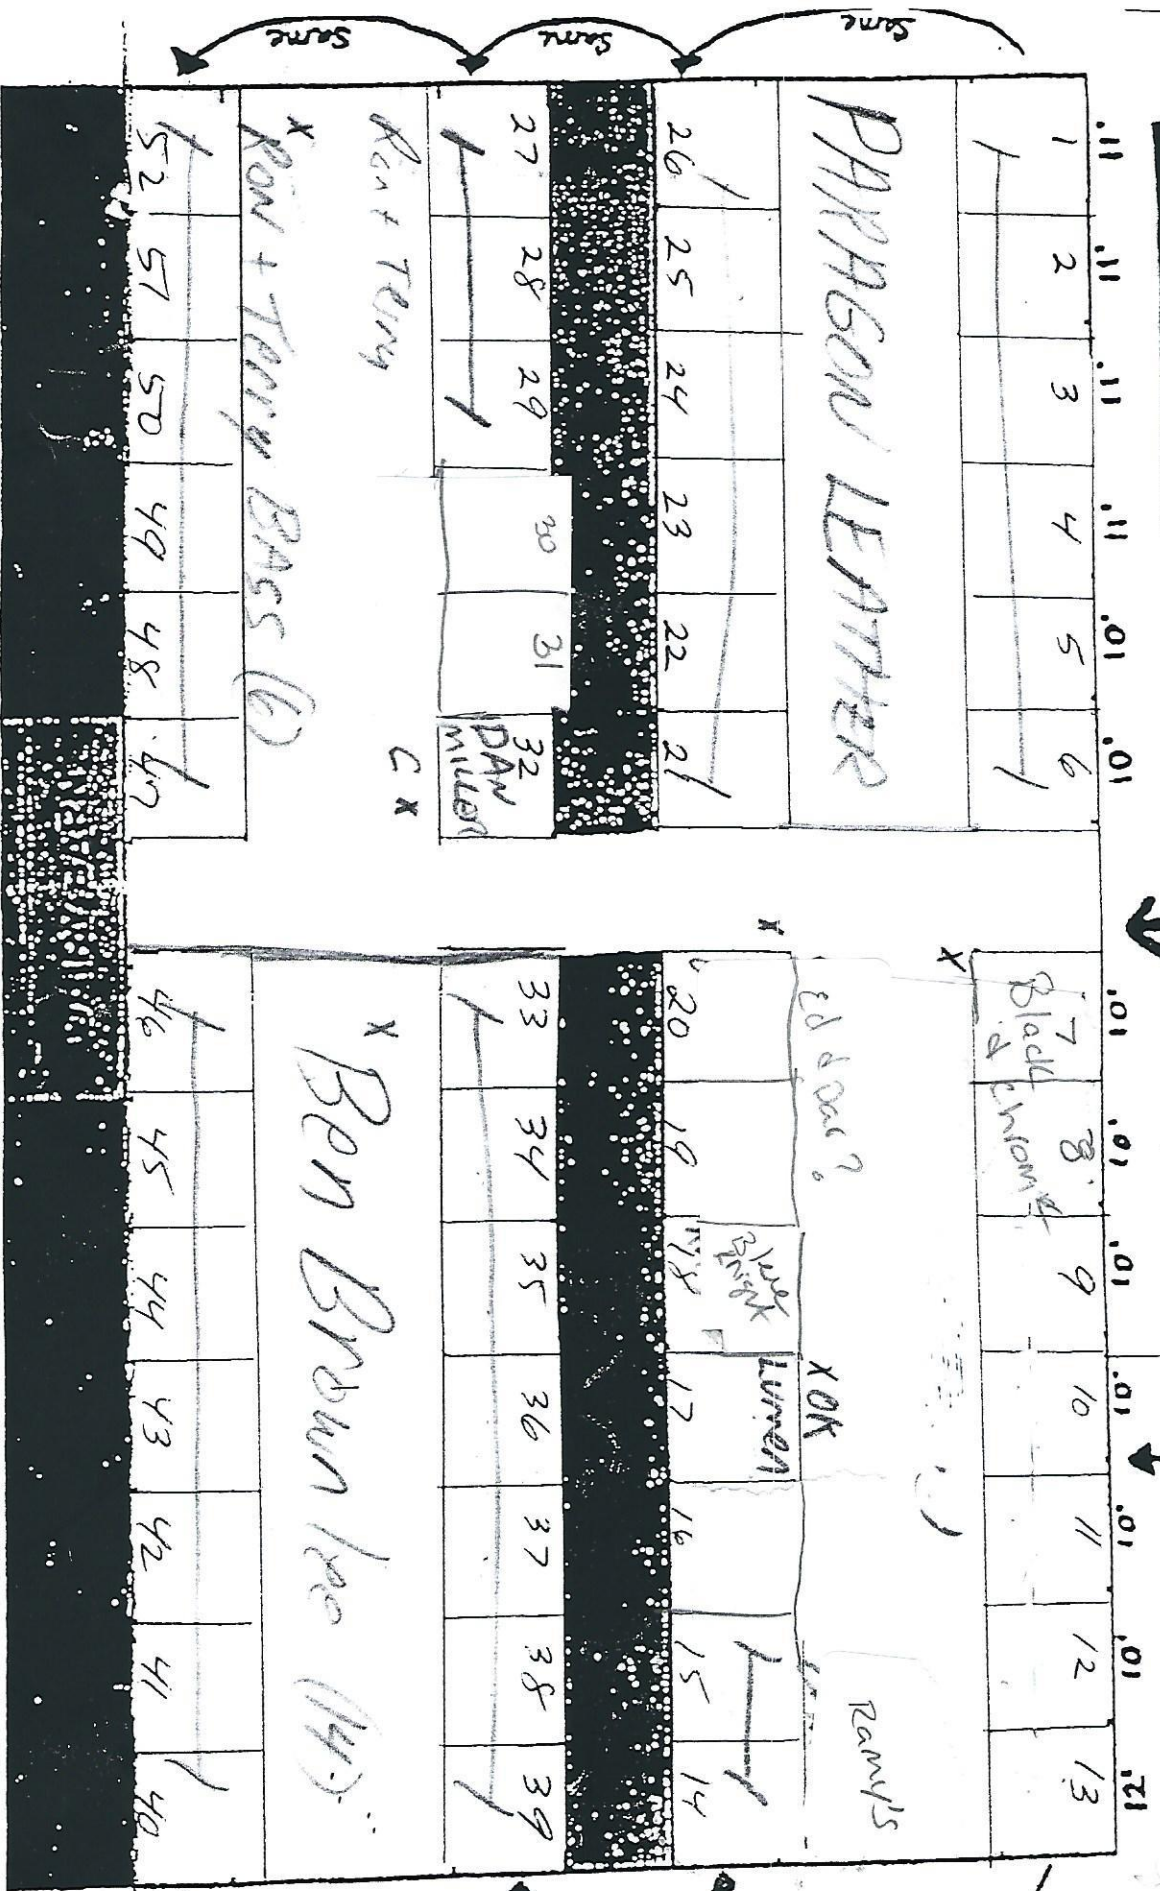 11' 11' 11' 11' 10' 10' 10' 10' 10' 10' 10' 10' 12'
1 2 3 4 5 6 7 8 9 10 11 12 13
Black
&
Chrome
PARAGON LEATHER
Ramy's
Ed
X
X OK
X
Lumen
26 25 24 23 22 21 20 19 18 17 16 15 14
27 28 29 30 31 32 33 34 35 36 37 38 39
DAN
MILLER
C X
Ron + Terry
X Ron + Terry BASS (6)
X Ben Brown lee (14)
52 51 50 49 48 47 46 45 44 43 42 41 40
Same
Same
Same